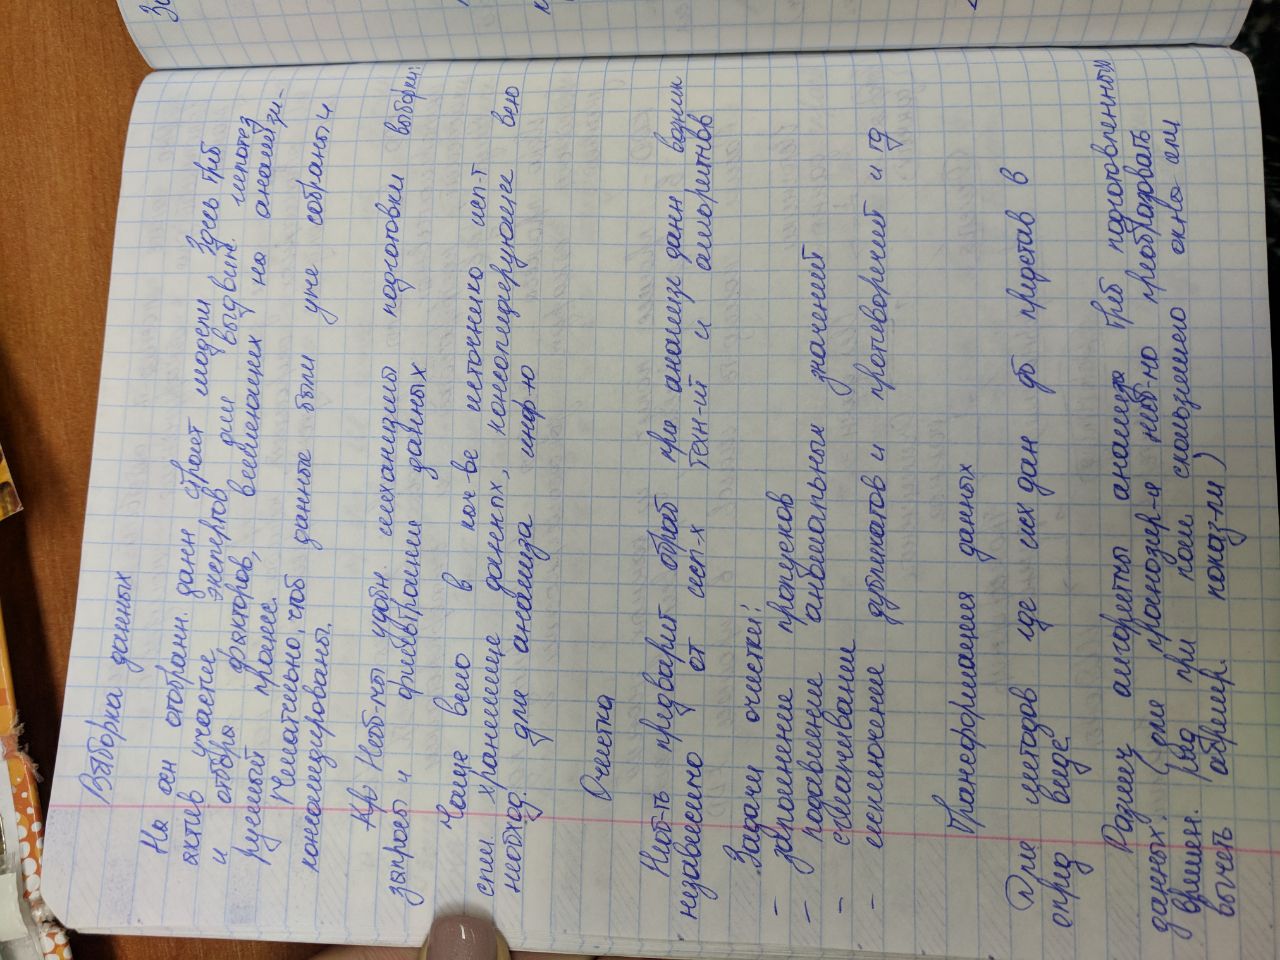 Выборка данных
На осн отобранн. данн строят модели Здесь треб
актив участие экспертов для выдвиж. гипотез
и отбора факторов, влияющих на анализи-
руемый процесс.
Желательно, чтоб данные были уже собраны и
консолидированы.
Необ-мы удобн. механизмы подготовки выборки:
запрос и фильтрации данных
Чаще всего в кач-ве источника исп-т
спец. хранилище данных, консолидирующее всю
необход. для анализа инф-ю
Очистка
Необ-ть предварит обраб при анализе данн возник
независимо от исп-х техн-ий и алгоритмов
Задачи очистки:
- заполнение пропусков
- подавление аномальных значений
- сглаживание
- исключение дубликатов и противоречий и тд
Трансформация данных
Для методов где исх дан дб представ в
опред виде
Разные алгоритмы анализа треб подготовленных
данных. (для прогнозир-я необ-мо преобразовать
времен. ряд при пом скользящего окна или
вычесть агрегир. показ-ли)